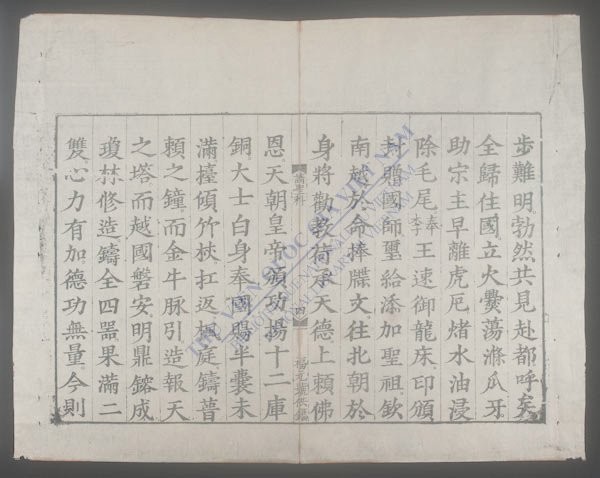 步難明勃然共見赴都呼矣
全歸住國立火爨蕩滌瓜牙
助宗主早離虎厄堵水油浸
除毛尾奉李王速御龍床印頒
封贈國師璽給添加聖祖欽
南越於命捧牒文往北朝於
身將勸教荷承天德上賴佛
諸聖科
四
恩天朝皇帝頒功揚十二庫
銅大士白身奉國賜半囊未
滿擡傾竹杖扛返楓庭鑄普
賴之鐘而金牛脉引造報天
之塔而越國磐安明鼎鎔成
瓊林修造鑄全四器果滿二
雙心力有加德功無量今則
THƯ VIỆN QUỐC GIA VIỆT NAM